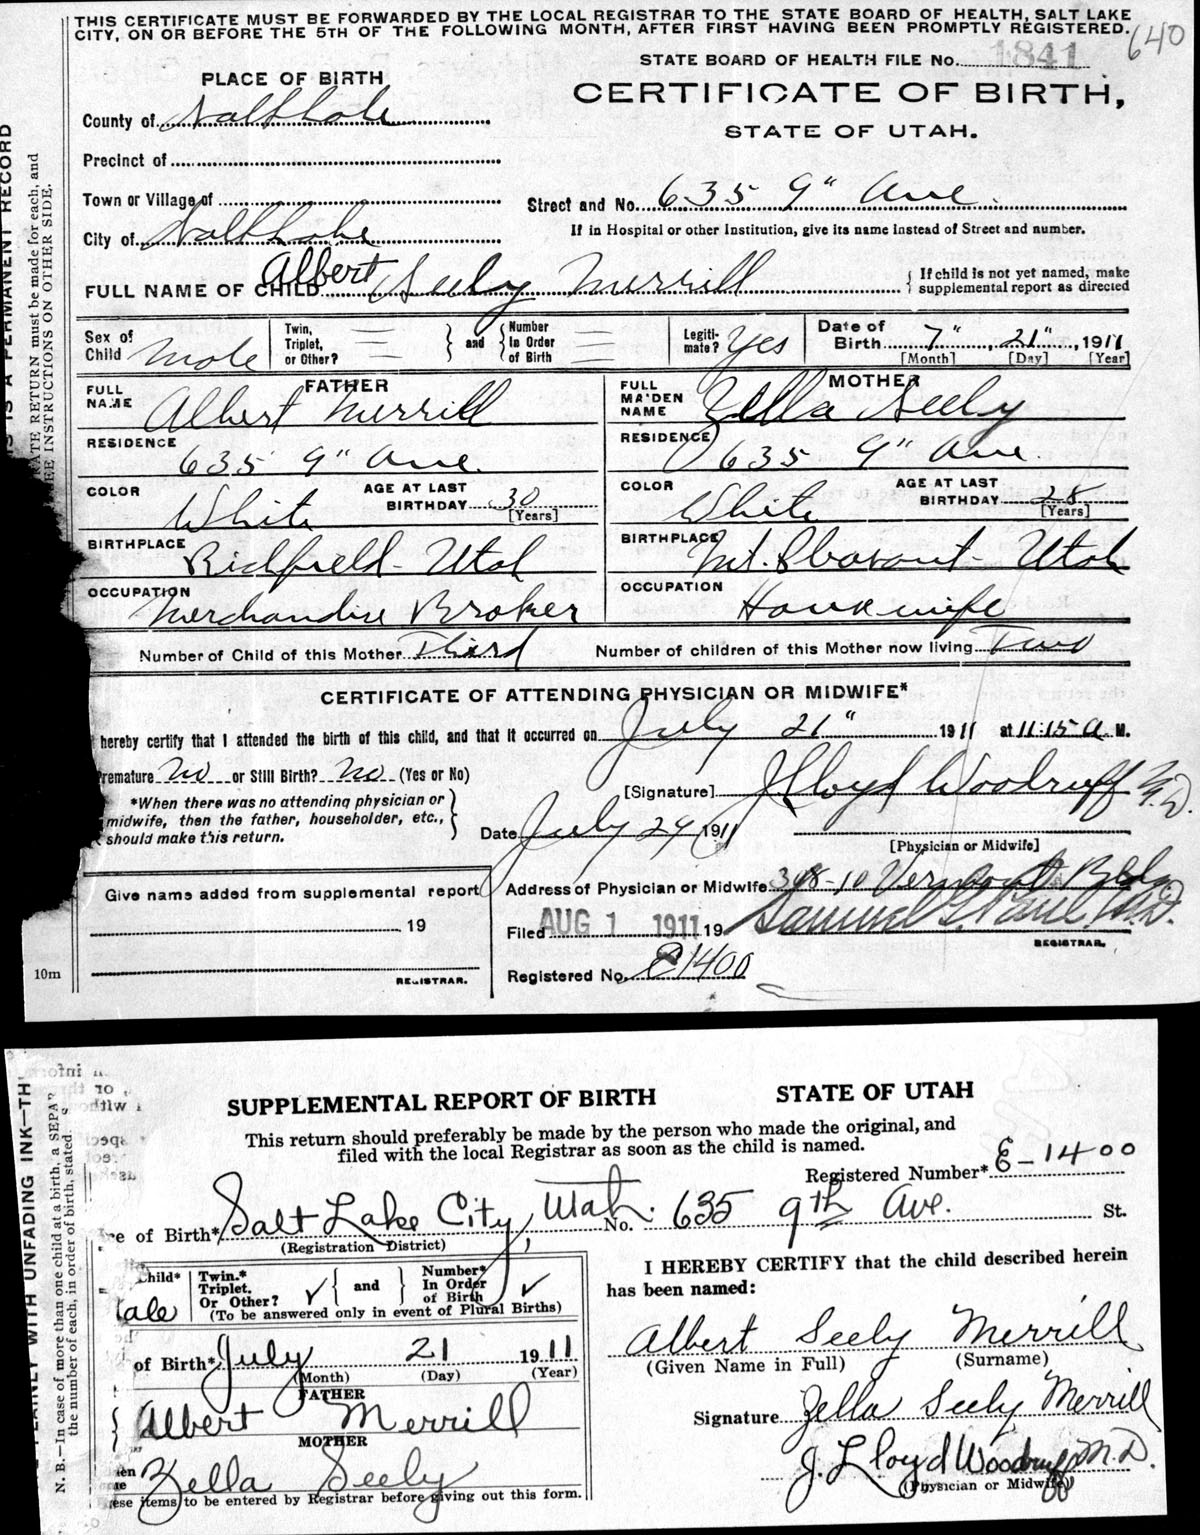 THIS CERTIFICATE MUST BE FORWARDED BY THE LOCAL REGISTRAR TO THE STATE BOARD OF HEALTH, SALT LAKE
CITY, ON OR BEFORE THE 5TH OF THE FOLLOWING MONTH, AFTER FIRST HAVING BEEN PROMPTLY REGISTERED.
640
STATE BOARD OF HEALTH FILE No. 1841
PLACE OF BIRTH
CERTIFICATE OF BIRTH,
STATE OF UTAH.
County of Salt Lake
Precinct of
Town or Village of
Street and No. 635 9" Ave.
City of Salt Lake
If in Hospital or other Institution, give its name instead of Street and number.
FULL NAME OF CHILD Albert Seely Merrill
{ If child is not yet named, make
supplemental report as directed
Sex of Child Male
Twin, Triplet, or Other?
} and {
Number In Order of Birth
Legiti-mate? Yes
Date of Birth 7", 21", 1911
[Month] [Day] [Year]
FATHER
FULL NAME Albert Merrill
RESIDENCE 635 9" Ave.
COLOR White
AGE AT LAST BIRTHDAY 30
[Years]
BIRTHPLACE Richfield - Utah
OCCUPATION Merchandise Broker
MOTHER
FULL MAIDEN NAME Zella Seely
RESIDENCE 635 9" Ave.
COLOR White
AGE AT LAST BIRTHDAY 28
[Years]
BIRTHPLACE Mt. Pleasant - Utah
OCCUPATION Housewife
Number of Child of this Mother Third
Number of children of this Mother now living Two
CERTIFICATE OF ATTENDING PHYSICIAN OR MIDWIFE*
hereby certify that I attended the birth of this child, and that it occurred on July 21" 1911 at 11:15 a M.
Premature No or Still Birth? No (Yes or No)
[Signature] J Lloyd Woodruff M.D.
*When there was no attending physician or
midwife, then the father, householder, etc.,
should make this return.
Date July 29 1911
[Physician or Midwife]
Give name added from supplemental report
19
REGISTRAR.
Address of Physician or Midwife 308-10 Vermont Bldg
Filed AUG 1 1911 19 Samuel G. Paul, M.D.
REGISTRAR.
Registered No. 1400
10m
IS A PERMANENT RECORD
RATE RETURN must be made for each, and
SEE INSTRUCTIONS ON OTHER SIDE.
SUPPLEMENTAL REPORT OF BIRTH
STATE OF UTAH
This return should preferably be made by the person who made the original, and
filed with the local Registrar as soon as the child is named.
Registered Number* E-1400
ce of Birth* Salt Lake City, Utah. No. 635 9th Ave. St.
(Registration District)
Child*
ale
Twin.*
Triplet.
Or Other? ✓
{ and }
Number*
In Order
of Birth ✓
(To be answered only in event of Plural Births)
of Birth* July 21 1911
(Month) (Day) (Year)
FATHER
Albert Merrill
MOTHER
Zella Seely
ese items to be entered by Registrar before giving out this form.
I HEREBY CERTIFY that the child described herein
has been named:
Albert Seely Merrill
(Given Name in Full) (Surname)
Signature Zella Seely Merrill
J. Lloyd Woodruff M.D.
(Physician or Midwife)
PLAINLY WITH UNFADING INK—TH
N. B.—In case of more than one child at a birth, a SEPA
the number of each, in order of birth, stated.